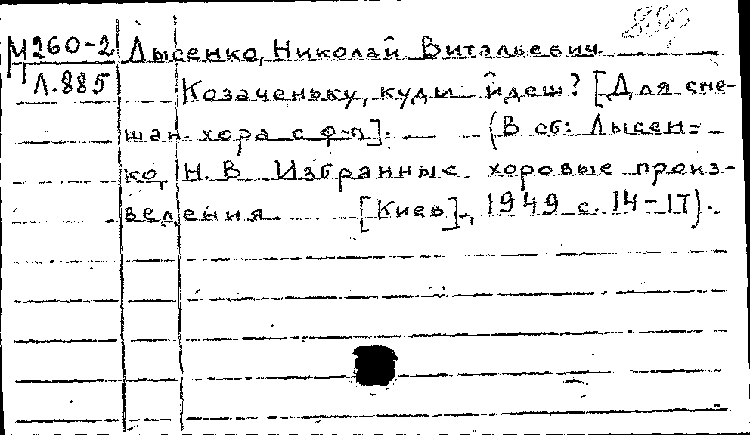 М260-2 Лысенко, Николай Витальевич
Л.885 Козаченьку, куды йдеш? [Для сме-
шан. хора с ф-п]. (В сб: Лысен-
ко, Н. В. Избранные хоровые произ-
ведения. [Киев], 1949 с. 14-17).